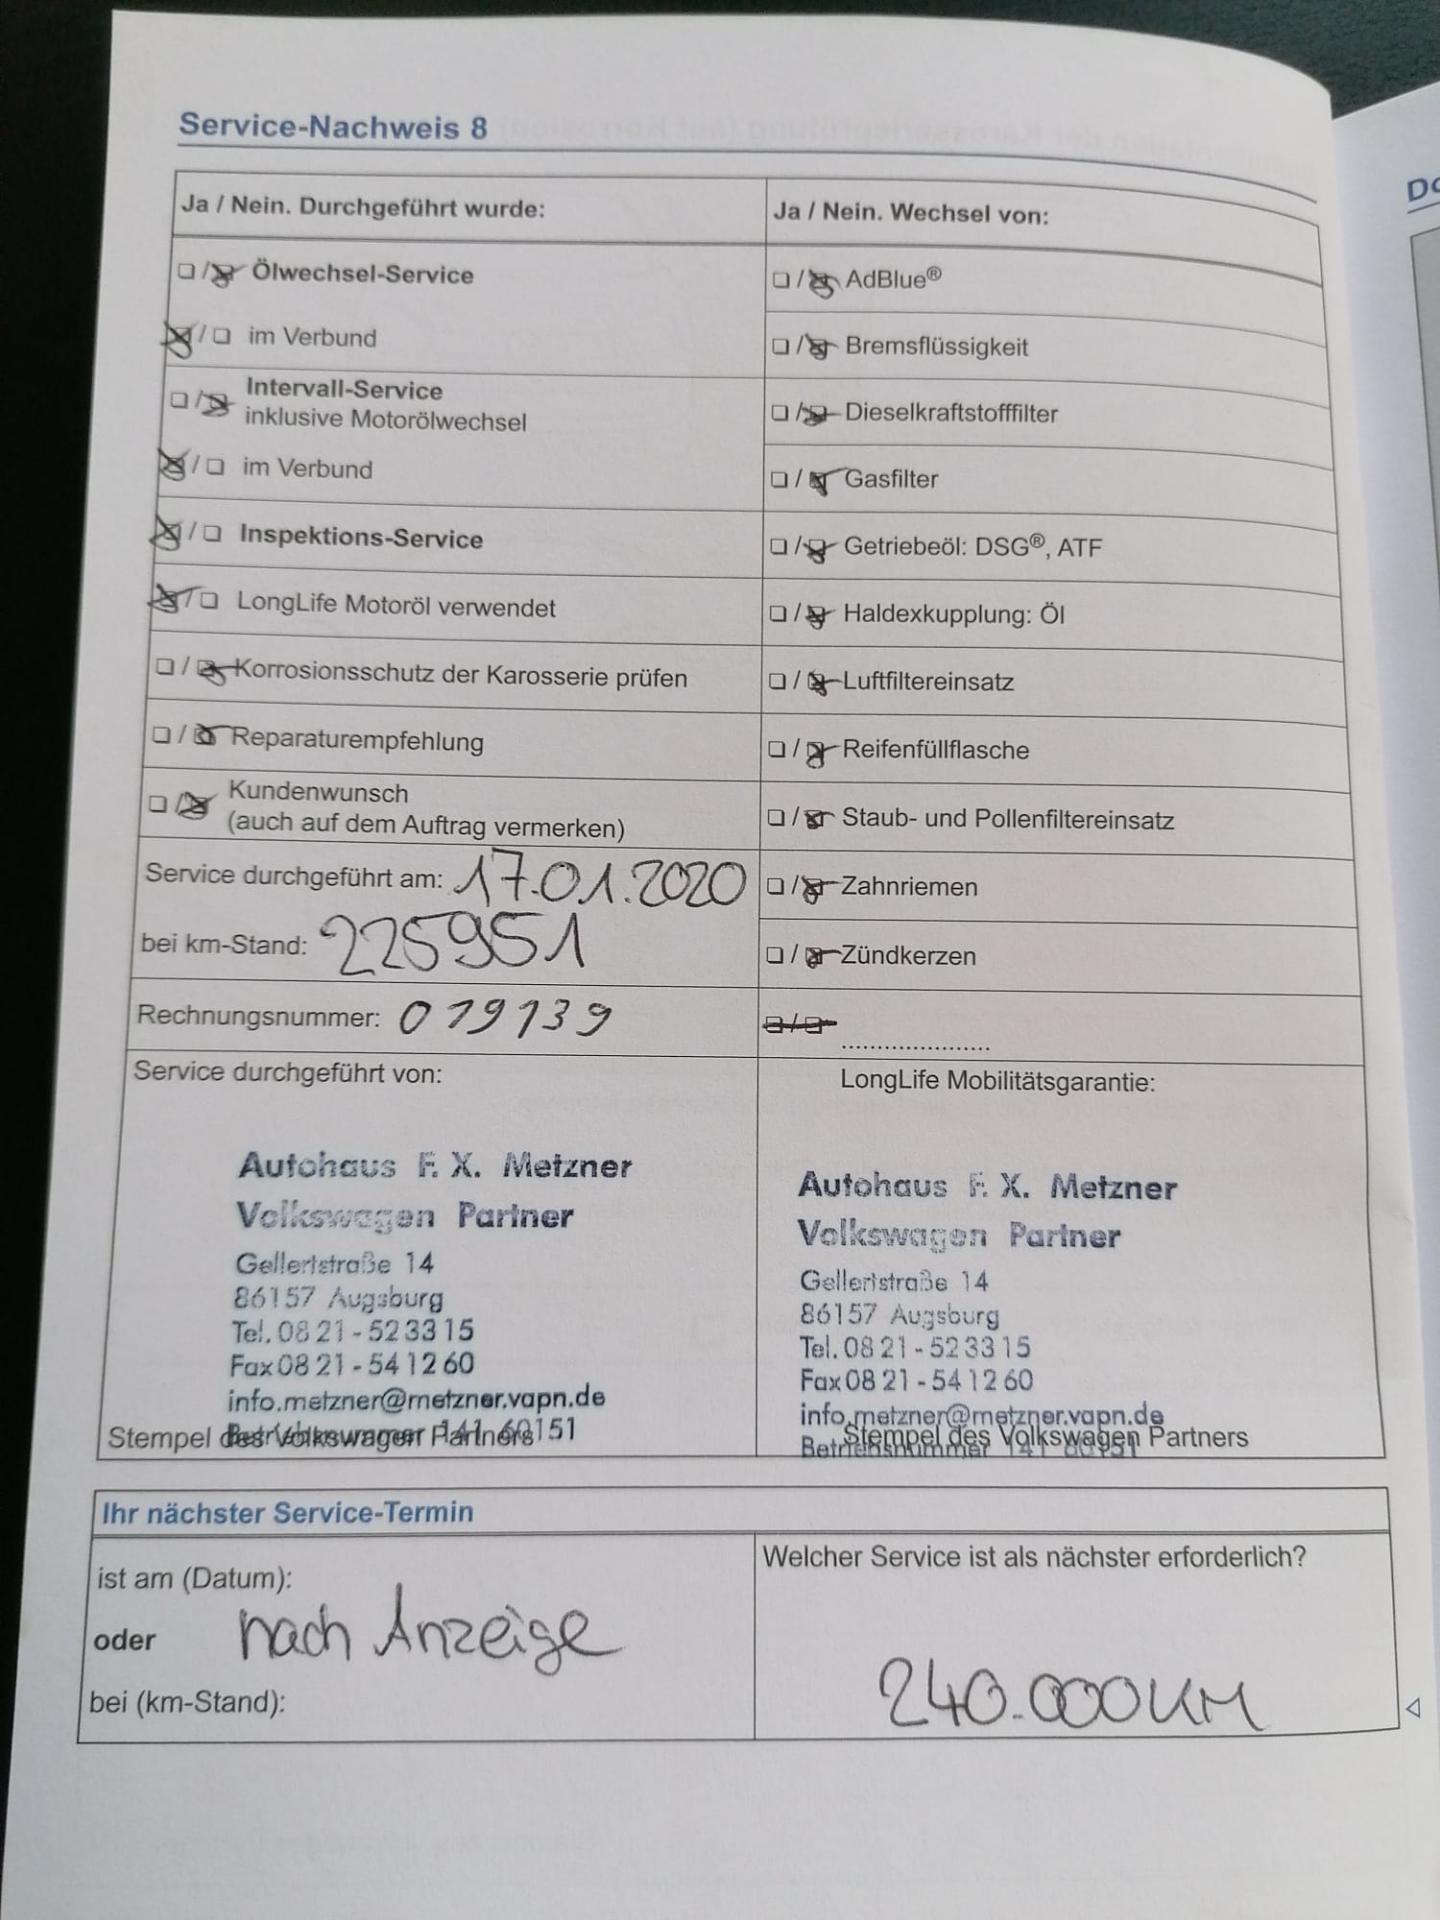 Service-Nachweis 8
Ja / Nein. Durchgeführt wurde:
☐ / ☒ Ölwechsel-Service
☒ / ☐ im Verbund
☐ / ☒ Intervall-Service
inklusive Motorölwechsel
☒ / ☐ im Verbund
☒ / ☐ Inspektions-Service
☒ / ☐ LongLife Motoröl verwendet
☐ / ☒ Korrosionsschutz der Karosserie prüfen
☐ / ☒ Reparaturempfehlung
☐ / ☒ Kundenwunsch
(auch auf dem Auftrag vermerken)
Service durchgeführt am: 17.01.2020
bei km-Stand: 225951
Rechnungsnummer: 019139
Service durchgeführt von:
Autohaus F. X. Metzner
Volkswagen Partner
Gellertstraße 14
86157 Augsburg
Tel. 08 21 - 52 33 15
Fax 08 21 - 54 12 60
info.metzner@metzner.vapn.de
Betriebsnummer 141 60151
Stempel des Volkswagen Partners
Ja / Nein. Wechsel von:
☐ / ☒ AdBlue®
☐ / ☒ Bremsflüssigkeit
☐ / ☒ Dieselkraftstofffilter
☐ / ☒ Gasfilter
☐ / ☒ Getriebeöl: DSG®, ATF
☐ / ☒ Haldexkupplung: Öl
☐ / ☒ Luftfiltereinsatz
☐ / ☒ Reifenfüllflasche
☐ / ☒ Staub- und Pollenfiltereinsatz
☐ / ☒ Zahnriemen
☐ / ☒ Zündkerzen
☐ / ☐ .....................
LongLife Mobilitätsgarantie:
Autohaus F. X. Metzner
Volkswagen Partner
Gellertstraße 14
86157 Augsburg
Tel. 08 21 - 52 33 15
Fax 08 21 - 54 12 60
info.metzner@metzner.vapn.de
Betriebsnummer 141 60151
Stempel des Volkswagen Partners
Ihr nächster Service-Termin
ist am (Datum):
oder nach Anzeige
bei (km-Stand):
Welcher Service ist als nächster erforderlich?
240.000 KM